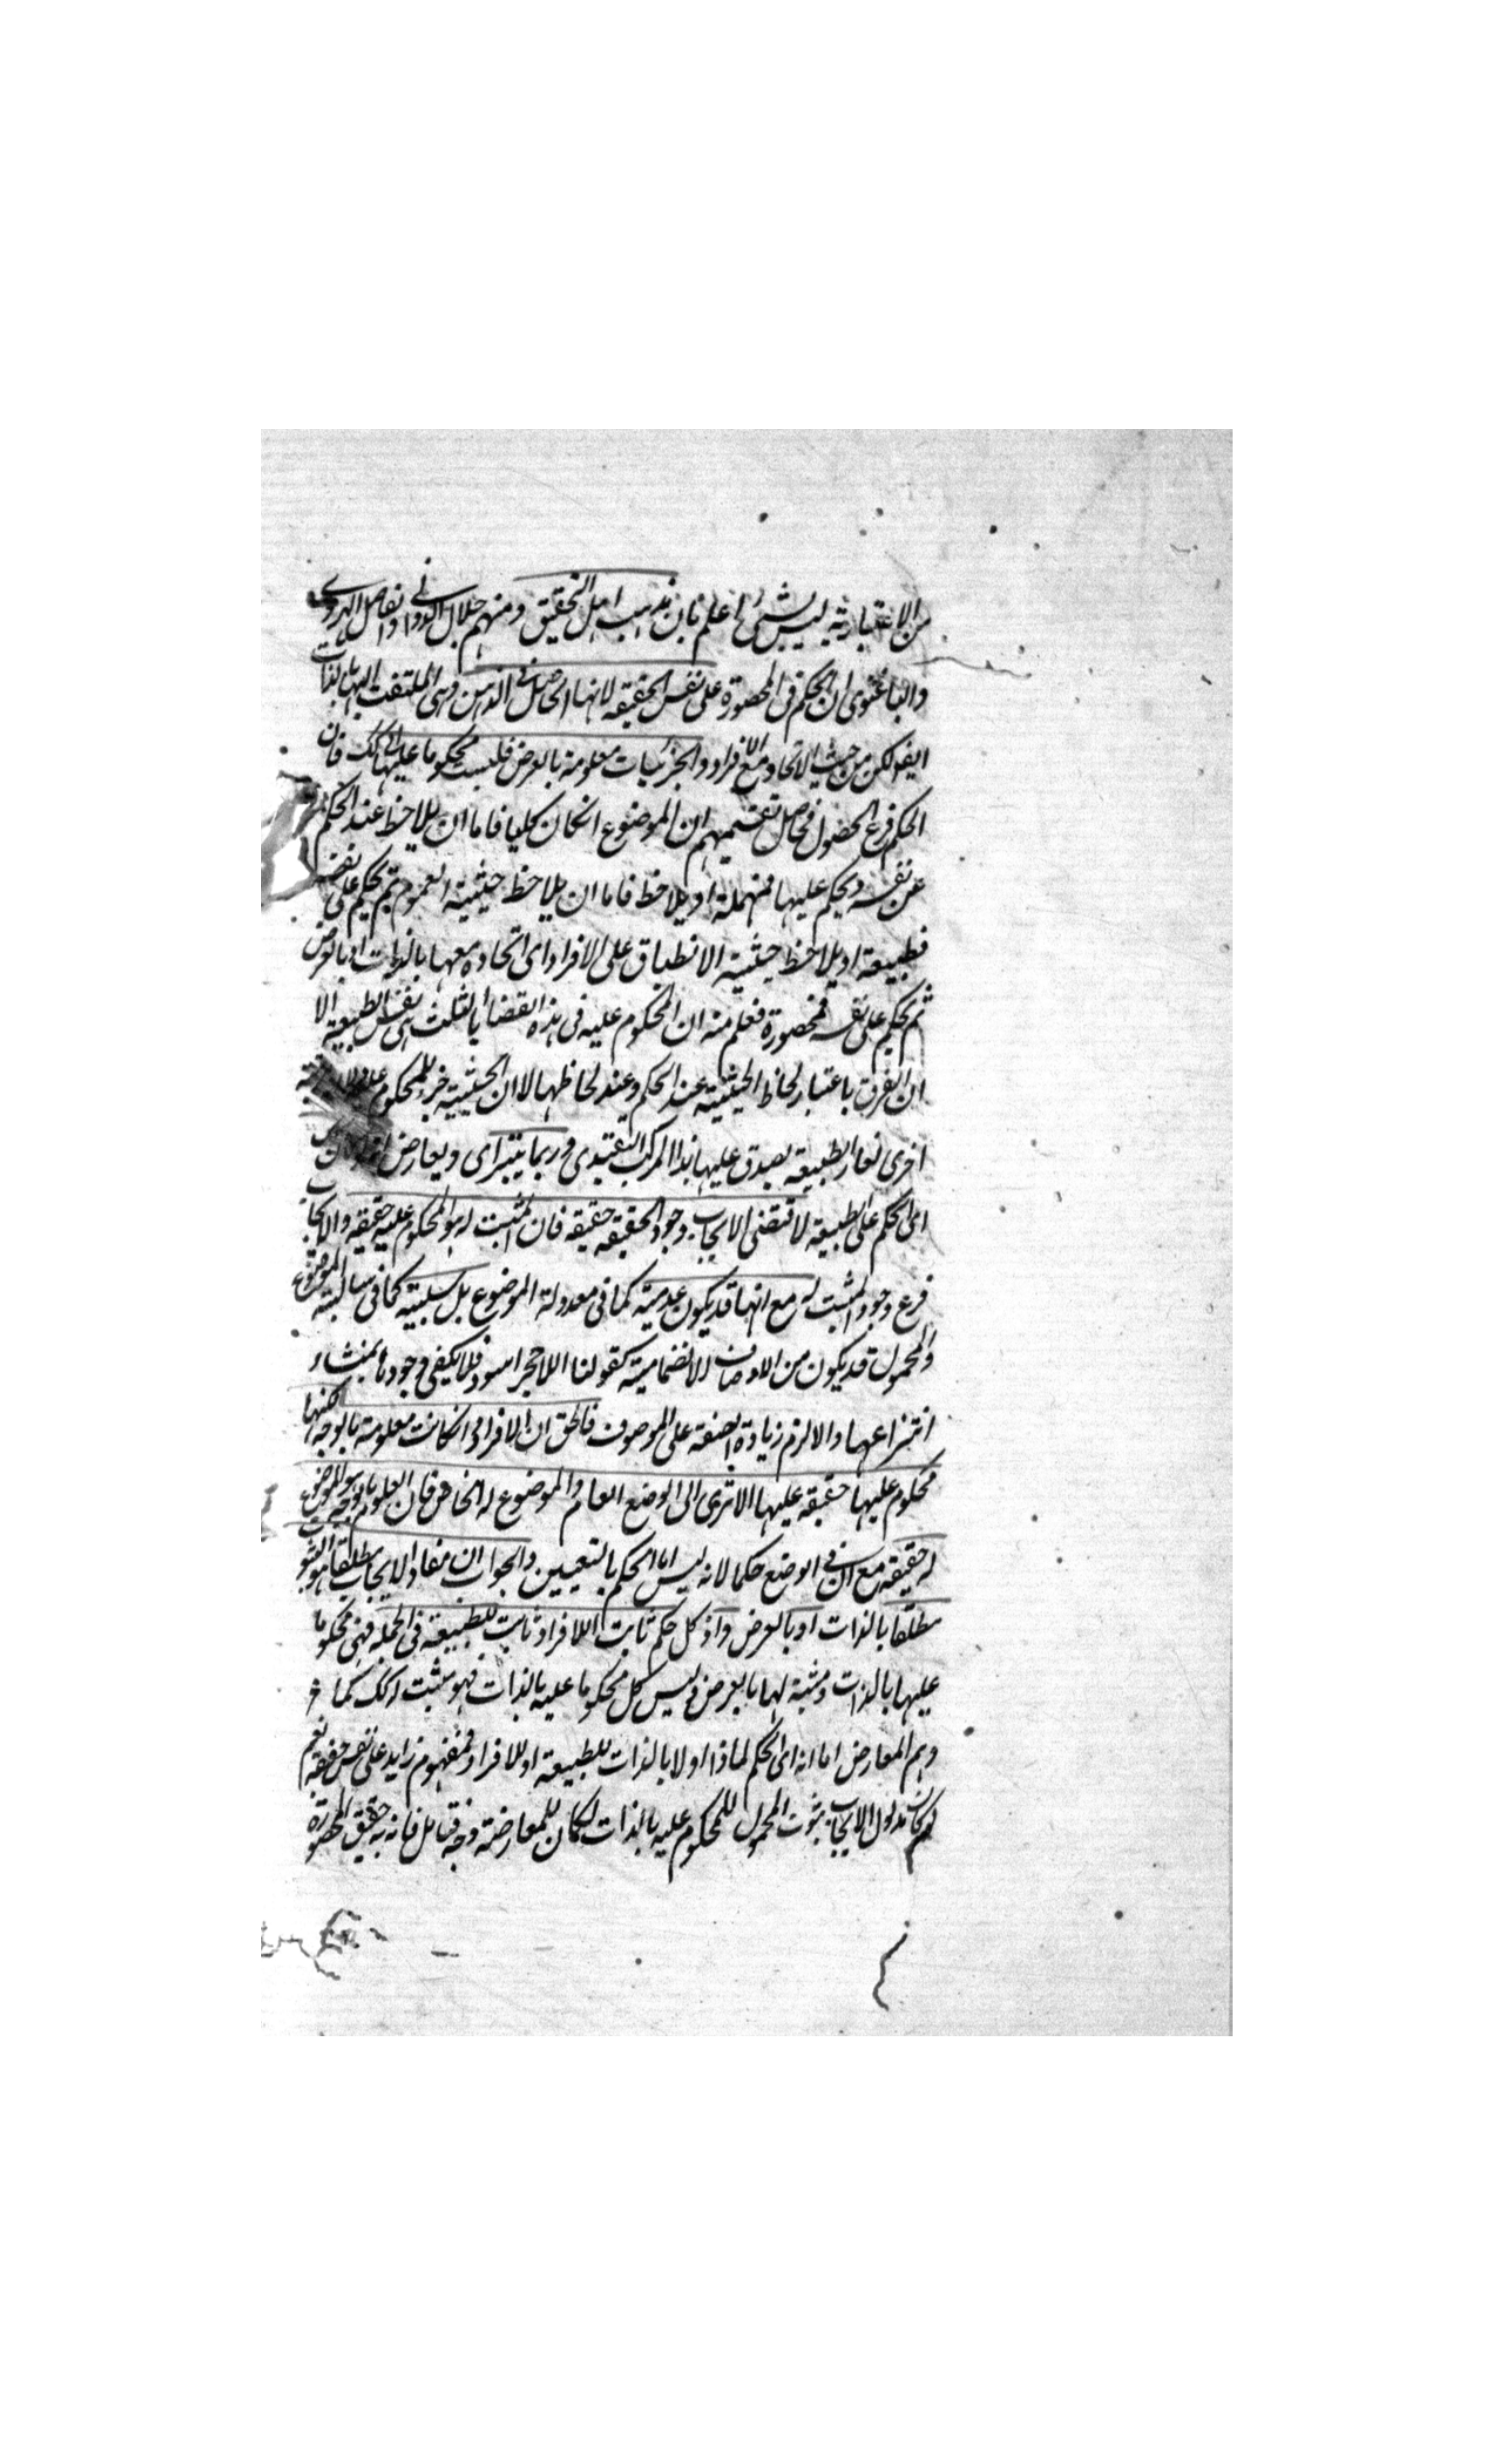 من الاعتبارية ليس بشئ اعلم بان مذهب اهل التحقيق ومنهم جلال الدوانى والفاضل الهروى
والباغنوى ان الحكم فى المحصورة على نفس الحقيقه لانها الحاصل فى الذهن وهى الملتفت اليها بالذات
ايضو لكن من حيث الاتحاد مع الافراد والجزئيات معلومة بالعرض فليست محكوما عليها كك فان
الحكم فرع الحضول فحاصل تقسيمهم ان الموضوع انكان كليا فاما ان يلاحظ عند الحكم
عن نفسه ويحكم عليها فمهملة او يلاحظ فاما ان يلاحظ حيثية العموم ثم يحكم على نفسه
فطبيعة او يلاحظ حيثية الانطباق على الافراد اى اتحاده معها بالذات او بالعرض
ثم يحكم على نفسه فمحصورة فعلم منه ان المحكوم عليه فى هذه القضايا الثلث هى نفس الطبيعة الا
ان الفرق باعتبار لحاظ الحيثية عند الحكم وعند لحاظها لا ان الحيثية جزء للمحكوم
اخرى نعم الطبيعة يصدق عليها هذا المركب التقييدى وربما يتراى ويعارض
اى الحكم على الطبيعة لاقتضى الايجاب وجود الحقيقه حقيقه فان المثبت له هو المحكوم عليه حقيقه والايجاب
فرع وجود المثبت له مع انها قد يكون عدمية كما فى معدولة الموضوع بل سلبية كما فى سالبة الموضوع
والمحمول قد يكون من الاوصاف الانضمامية كقولنا اللاحجر اسود فلا يكفى وجودها بمنشاء
انتزاعها والا لزم زيادة الصفة على الموصوف فالحق ان الافراد وانكانت معلومة بالوجه لكنها
محكوم عليها حقيقه عليها الا ترى الى الوضع العام والموضوع له الخاص فان المعلوم بالوجه هو الموضوع
له حقيقه مع ان فى الوضع حكما لانه ليس الا الحكم بالتعيين والجواب ان مفاد الايجاب مطلقا هو الثبوت
مطلقا بالذات او بالعرض واذ كل حكم ثابت للافراد ثابت للطبيعة فى الجملة فهى محكوما
عليها بالذات ومثبة لها بالعرض وليس كل محكوما عليه بالذات فهو مثبت له كك كما
وهم المعارض اما انه اى الحكم لماذا اولا بالذات للطبيعة او للافراد فمفهوم زايد على نفس حقيقه نعم
لو كان مدلول الايجاب ثبوت المحمول للمحكوم عليه بالذات لكان للمعارضة وجه فتامل فانه به حقيق المحصورة